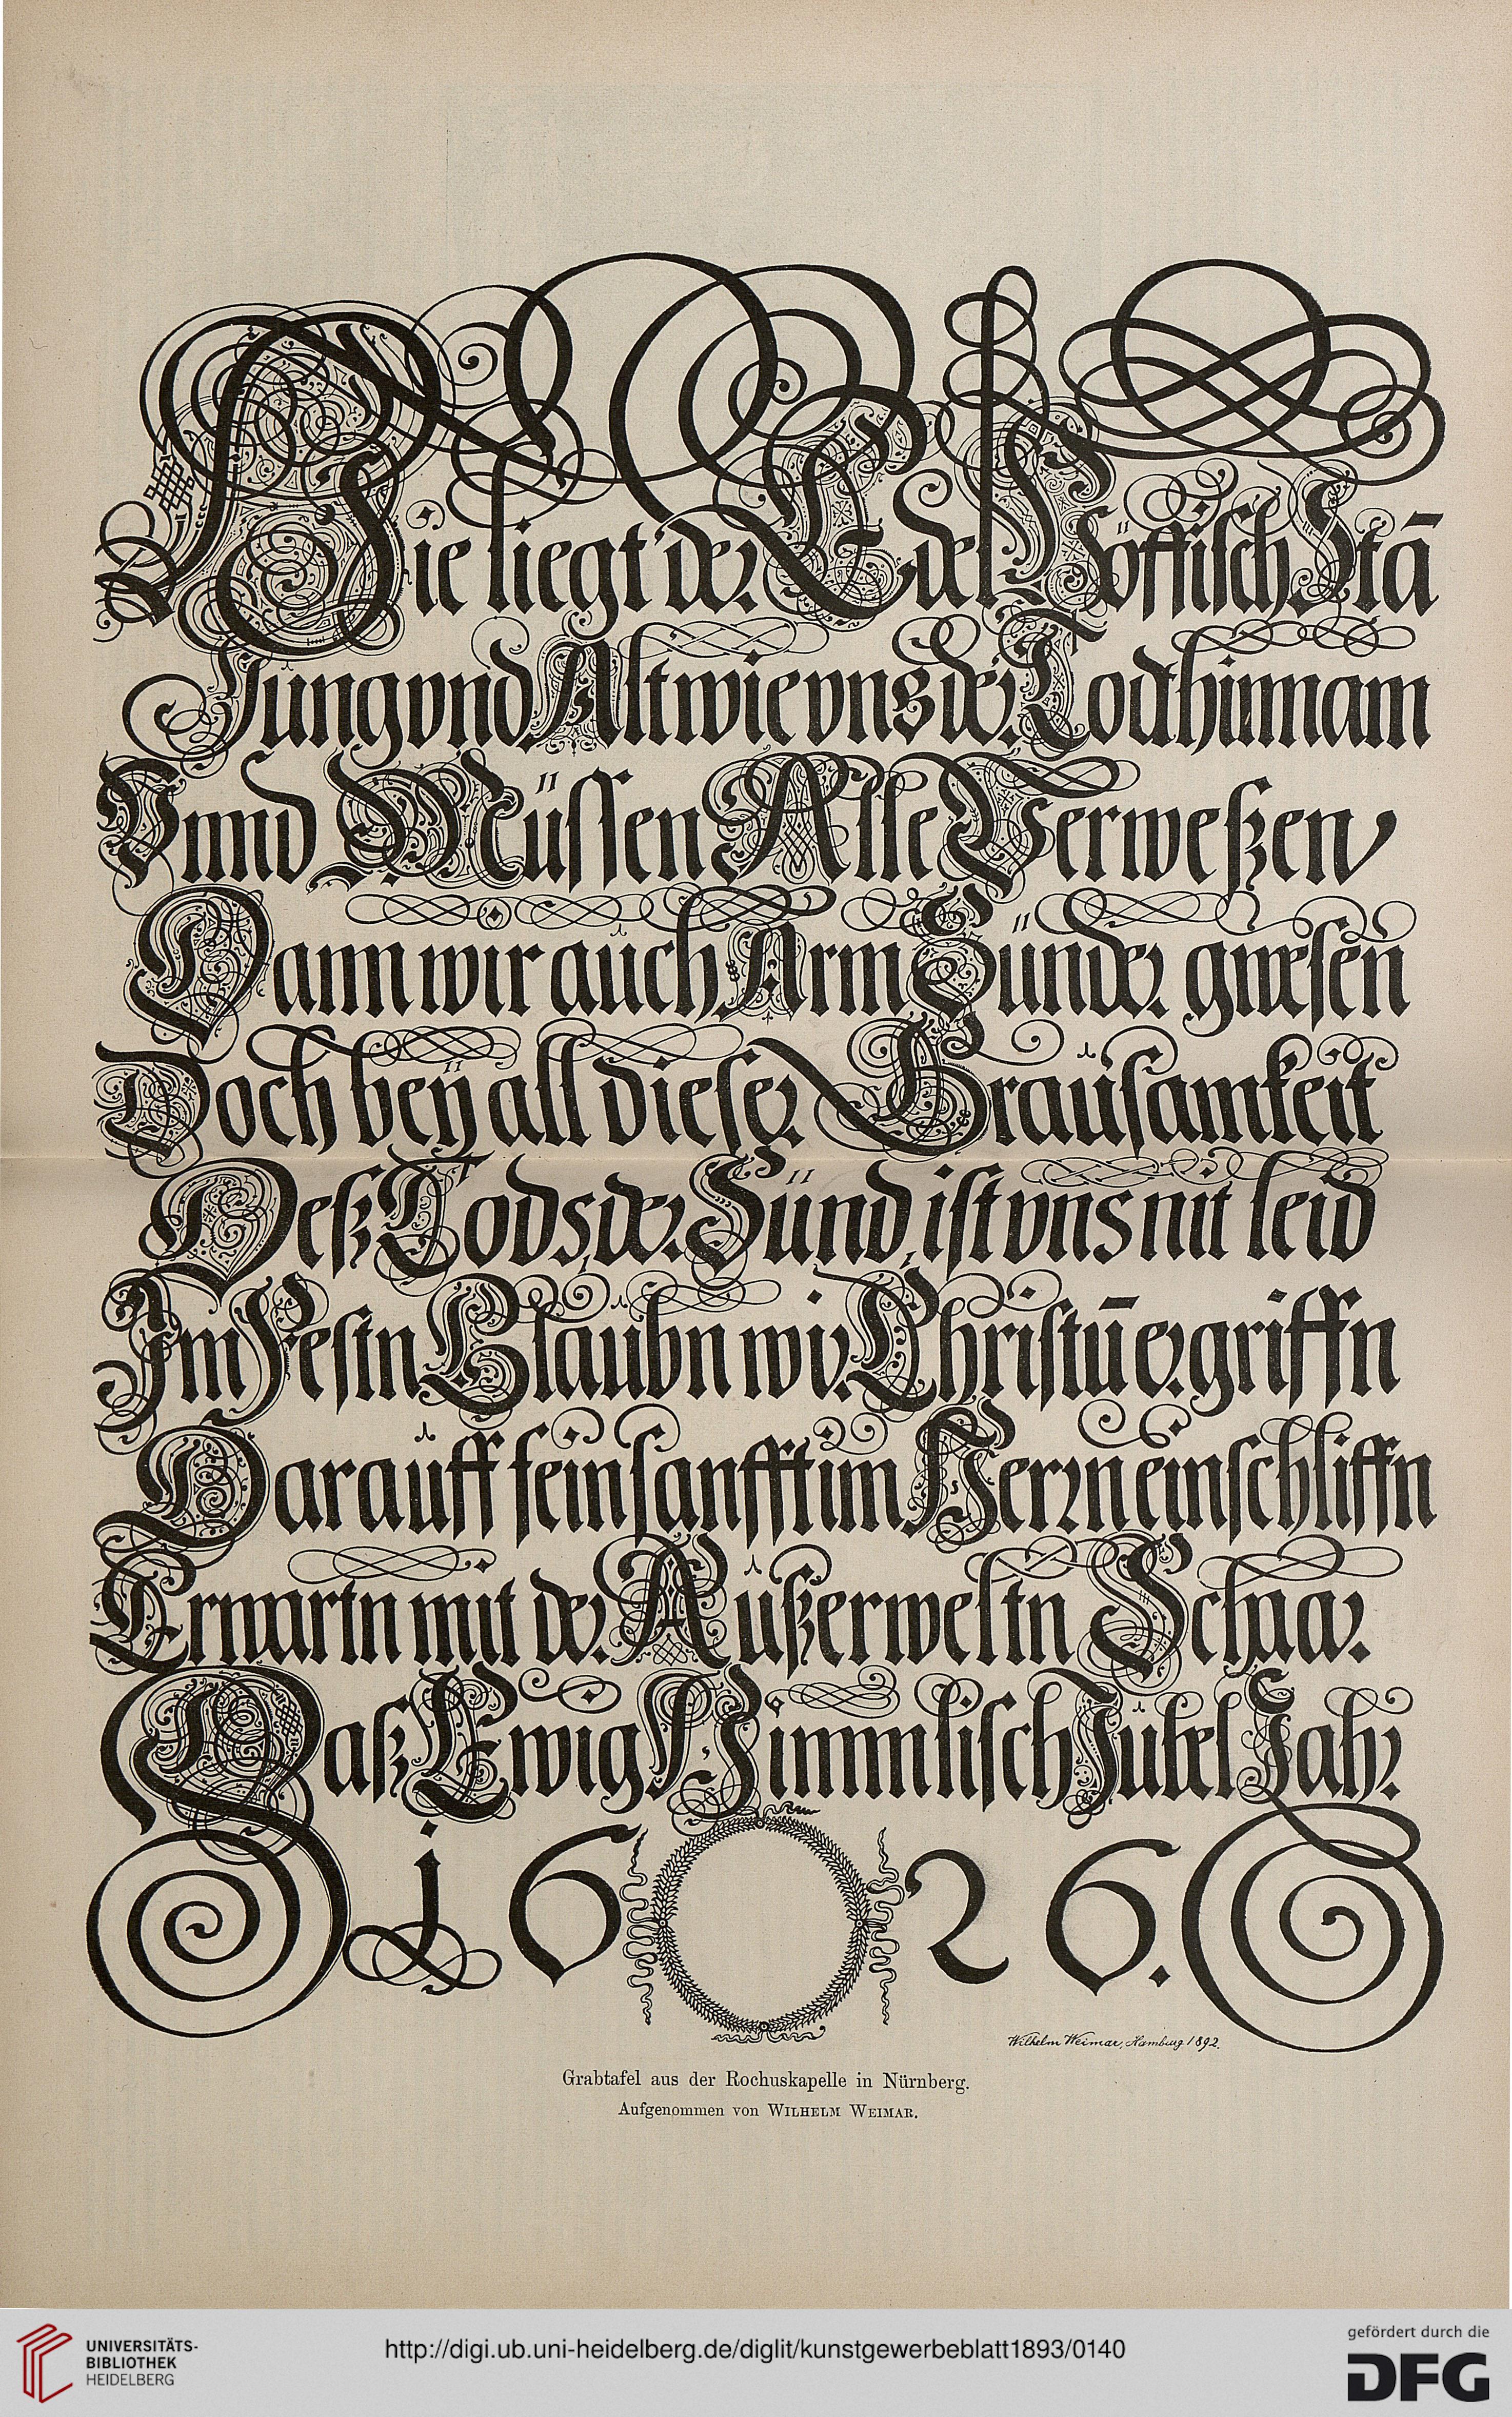 Hie liegt der Edel Pöffisch Stā
Jung vnd Alt wie vns der Todt hinnam
Vnnd Müssen Alle Verweßen,
Dann wir auch Arm Sünder gwesen
Doch beÿ all dieser Grausamkeit
Deß Tods, der Sünd, ist vns nit leid
Im Festn Glaubn wir Christū ergriffn
Darauff fein sanfft im Herrn einschliffn
Erwartn mit der Außerweltn Schaar
Daß Ewig Himmlisch Jubel Jahr
1626.
Wilhelm Weimar, Hamburg 1892.
Grabtafel aus der Rochuskapelle in Nürnberg.
Aufgenommen von WILHELM WEIMAR.
UNIVERSITÄTS-
BIBLIOTHEK
HEIDELBERG
http://digi.ub.uni-heidelberg.de/diglit/kunstgewerbeblatt1893/0140
gefördert durch die
DFG